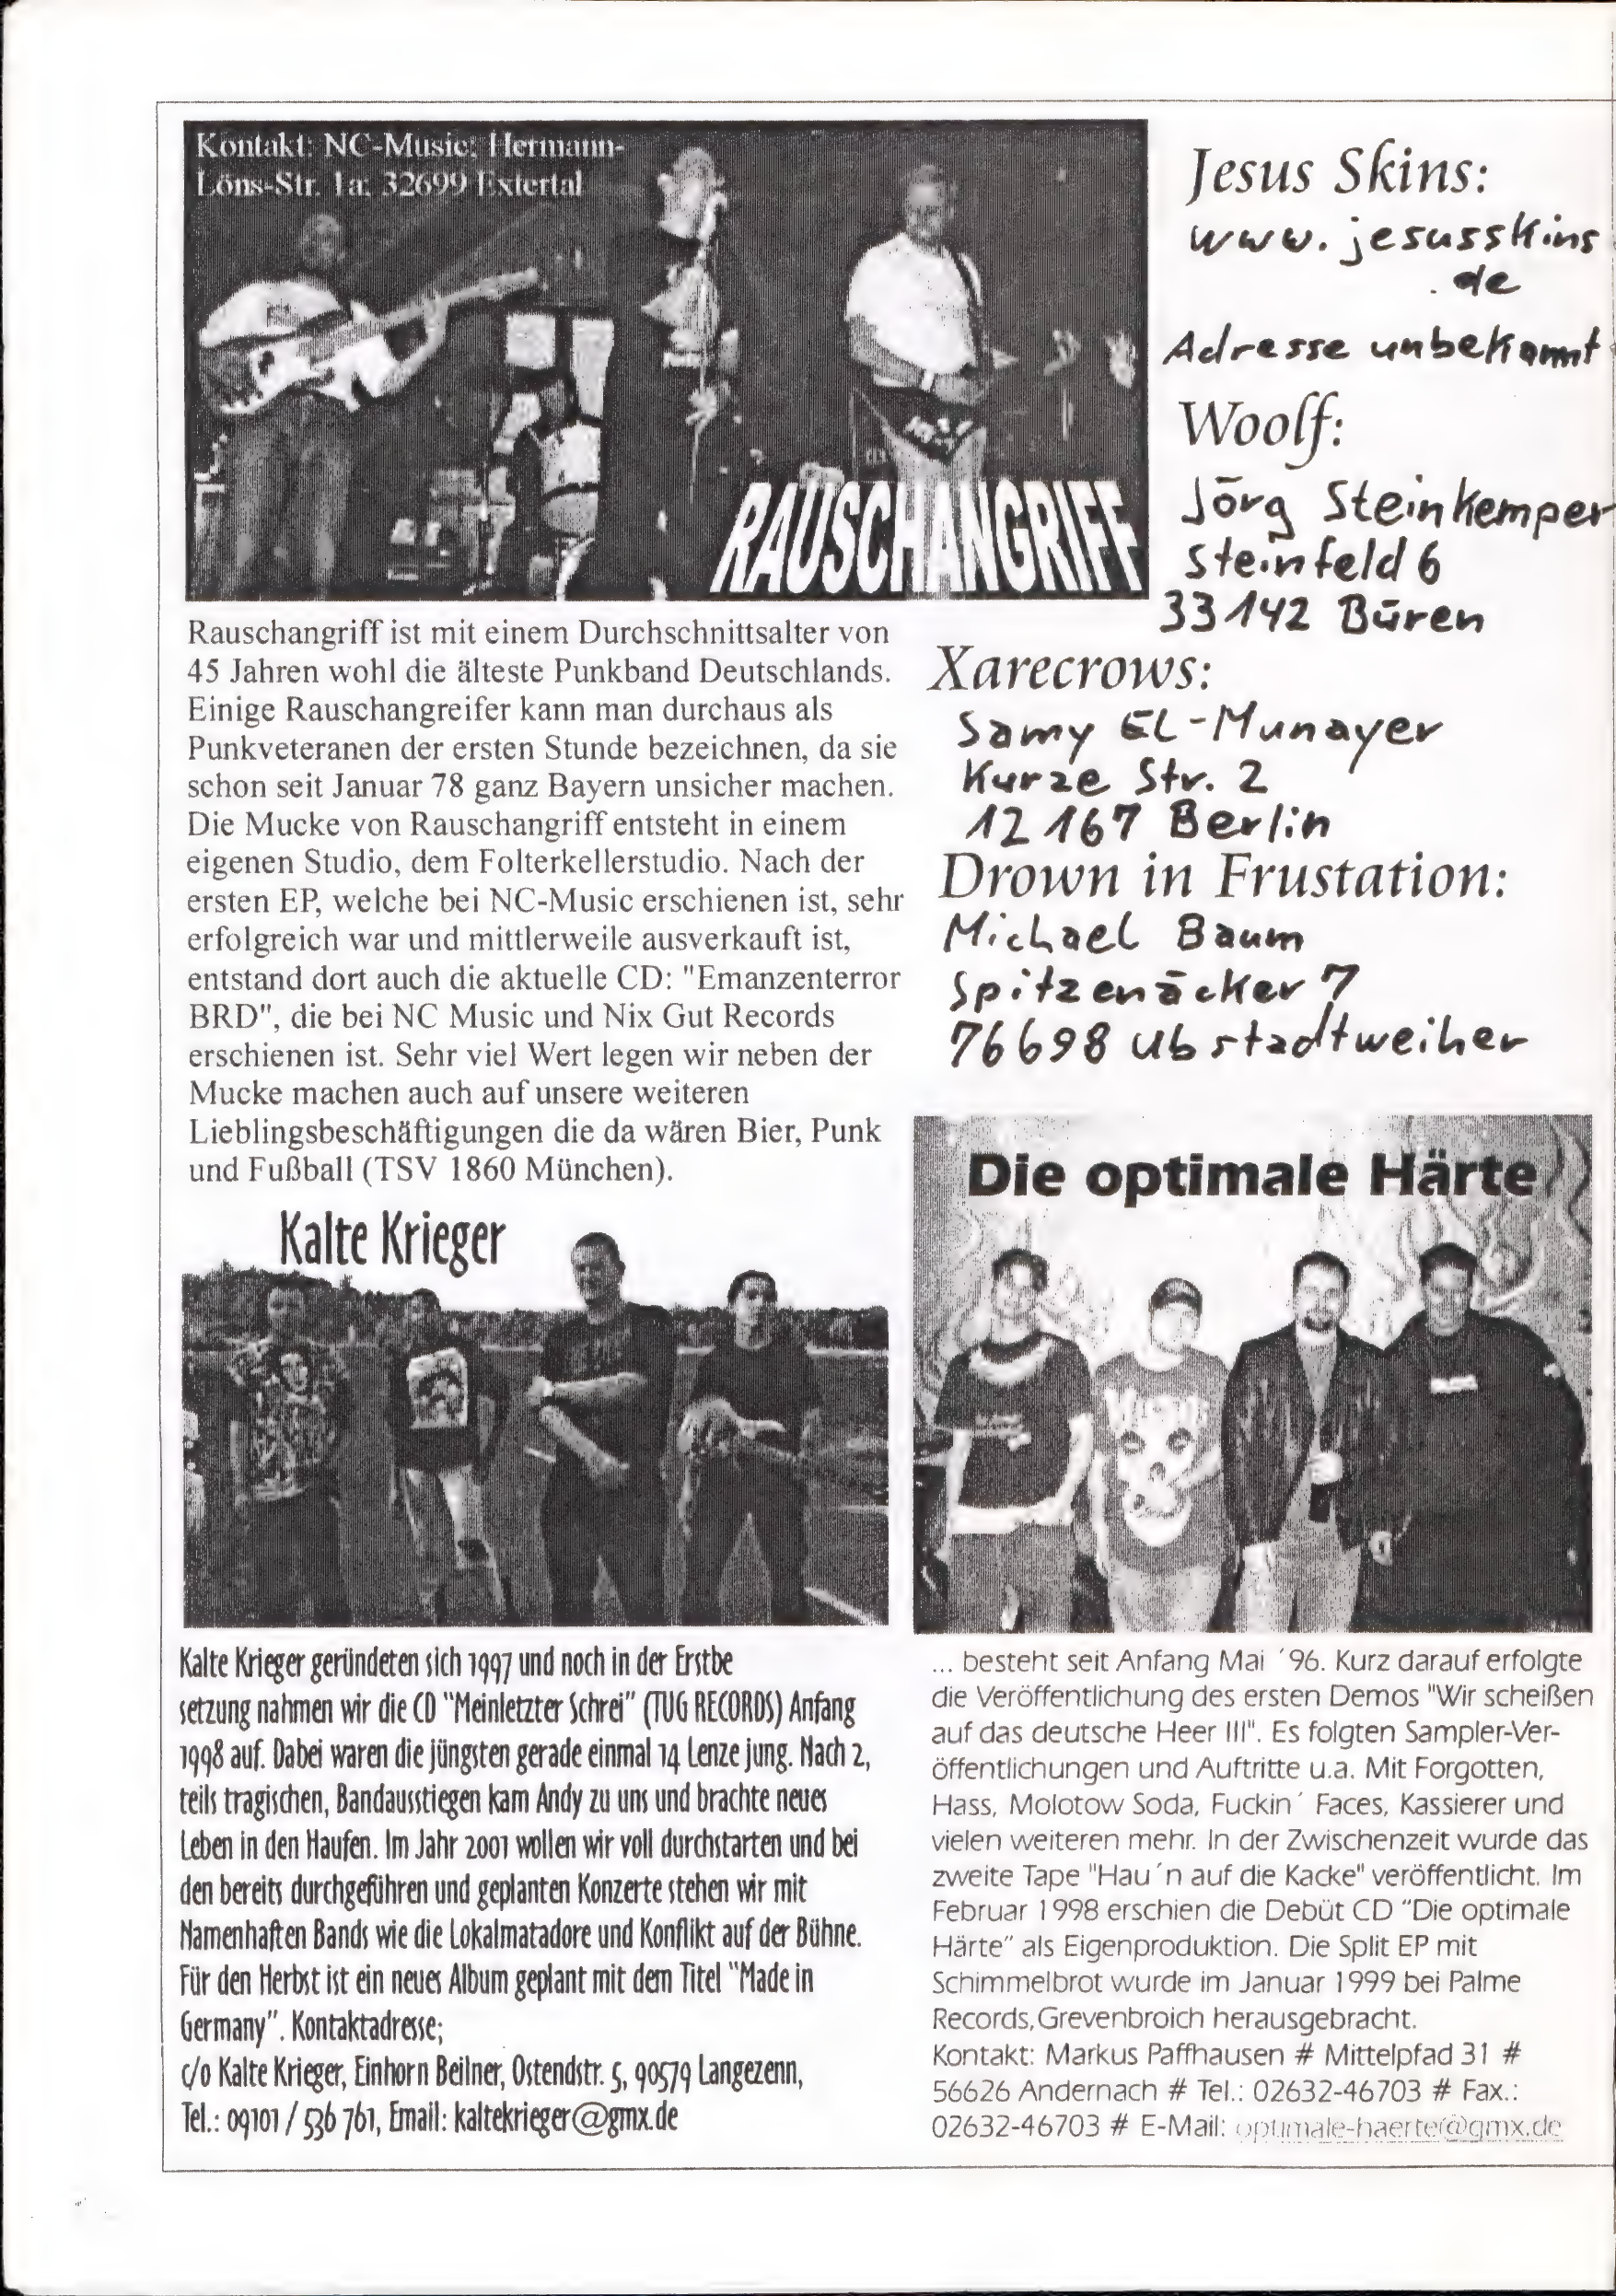 Kontakt: NC-Music; Hermann-
Löns-Str. 1a; 32699 Extertal
RAUSCHANGRIFF
Rauschangriff ist mit einem Durchschnittsalter von
45 Jahren wohl die älteste Punkband Deutschlands.
Einige Rauschangreifer kann man durchaus als
Punkveteranen der ersten Stunde bezeichnen, da sie
schon seit Januar 78 ganz Bayern unsicher machen.
Die Mucke von Rauschangriff entsteht in einem
eigenen Studio, dem Folterkellerstudio. Nach der
ersten EP, welche bei NC-Music erschienen ist, sehr
erfolgreich war und mittlerweile ausverkauft ist,
entstand dort auch die aktuelle CD: "Emanzenterror
BRD", die bei NC Music und Nix Gut Records
erschienen ist. Sehr viel Wert legen wir neben der
Mucke machen auch auf unsere weiteren
Lieblingsbeschäftigungen die da wären Bier, Punk
und Fußball (TSV 1860 München).
Jesus Skins:
www.jesusskins
.de
Adresse unbekannt
Woolf:
Jörg Steinkemper
Steinfeld 6
33142 Büren
Xarecrows:
Samy EL-Munayer
Kurze Str. 2
12167 Berlin
Drown in Frustation:
Michael Baum
Spitzenäcker 7
76698 Ubstadtweiher
Kalte Krieger
Kalte Krieger geründeten sich 1997 und noch in der Erstbe
setzung nahmen wir die CD "Meinletzter Schrei" (TUG RECORDS) Anfang
1998 auf. Dabei waren die jüngsten gerade einmal 14 Lenze jung. Nach 2,
teils tragischen, Bandausstiegen kam Andy zu uns und brachte neues
Leben in den Haufen. Im Jahr 2001 wollen wir voll durchstarten und bei
den bereits durchgeführen und geplanten Konzerte stehen wir mit
Namenhaften Bands wie die Lokalmatadore und Konflikt auf der Bühne.
Für den Herbst ist ein neues Album geplant mit dem Titel "Made in
Germany". Kontaktadresse;
c/o Kalte Krieger, Einhorn Beilner, Ostendstr. 5, 90579 Langezenn,
Tel.: 09101 / 536 761, Email: kaltekrieger@gmx.de
Die optimale Härte
... besteht seit Anfang Mai ´96. Kurz darauf erfolgte
die Veröffentlichung des ersten Demos "Wir scheißen
auf das deutsche Heer III". Es folgten Sampler-Ver-
öffentlichungen und Auftritte u.a. Mit Forgotten,
Hass, Molotow Soda, Fuckin´ Faces, Kassierer und
vielen weiteren mehr. In der Zwischenzeit wurde das
zweite Tape "Hau´n auf die Kacke" veröffentlicht. Im
Februar 1998 erschien die Debüt CD "Die optimale
Härte" als Eigenproduktion. Die Split EP mit
Schimmelbrot wurde im Januar 1999 bei Palme
Records,Grevenbroich herausgebracht.
Kontakt: Markus Paffhausen # Mittelpfad 31 #
56626 Andernach # Tel.: 02632-46703 # Fax.:
02632-46703 # E-Mail: optimale-haerte@gmx.de